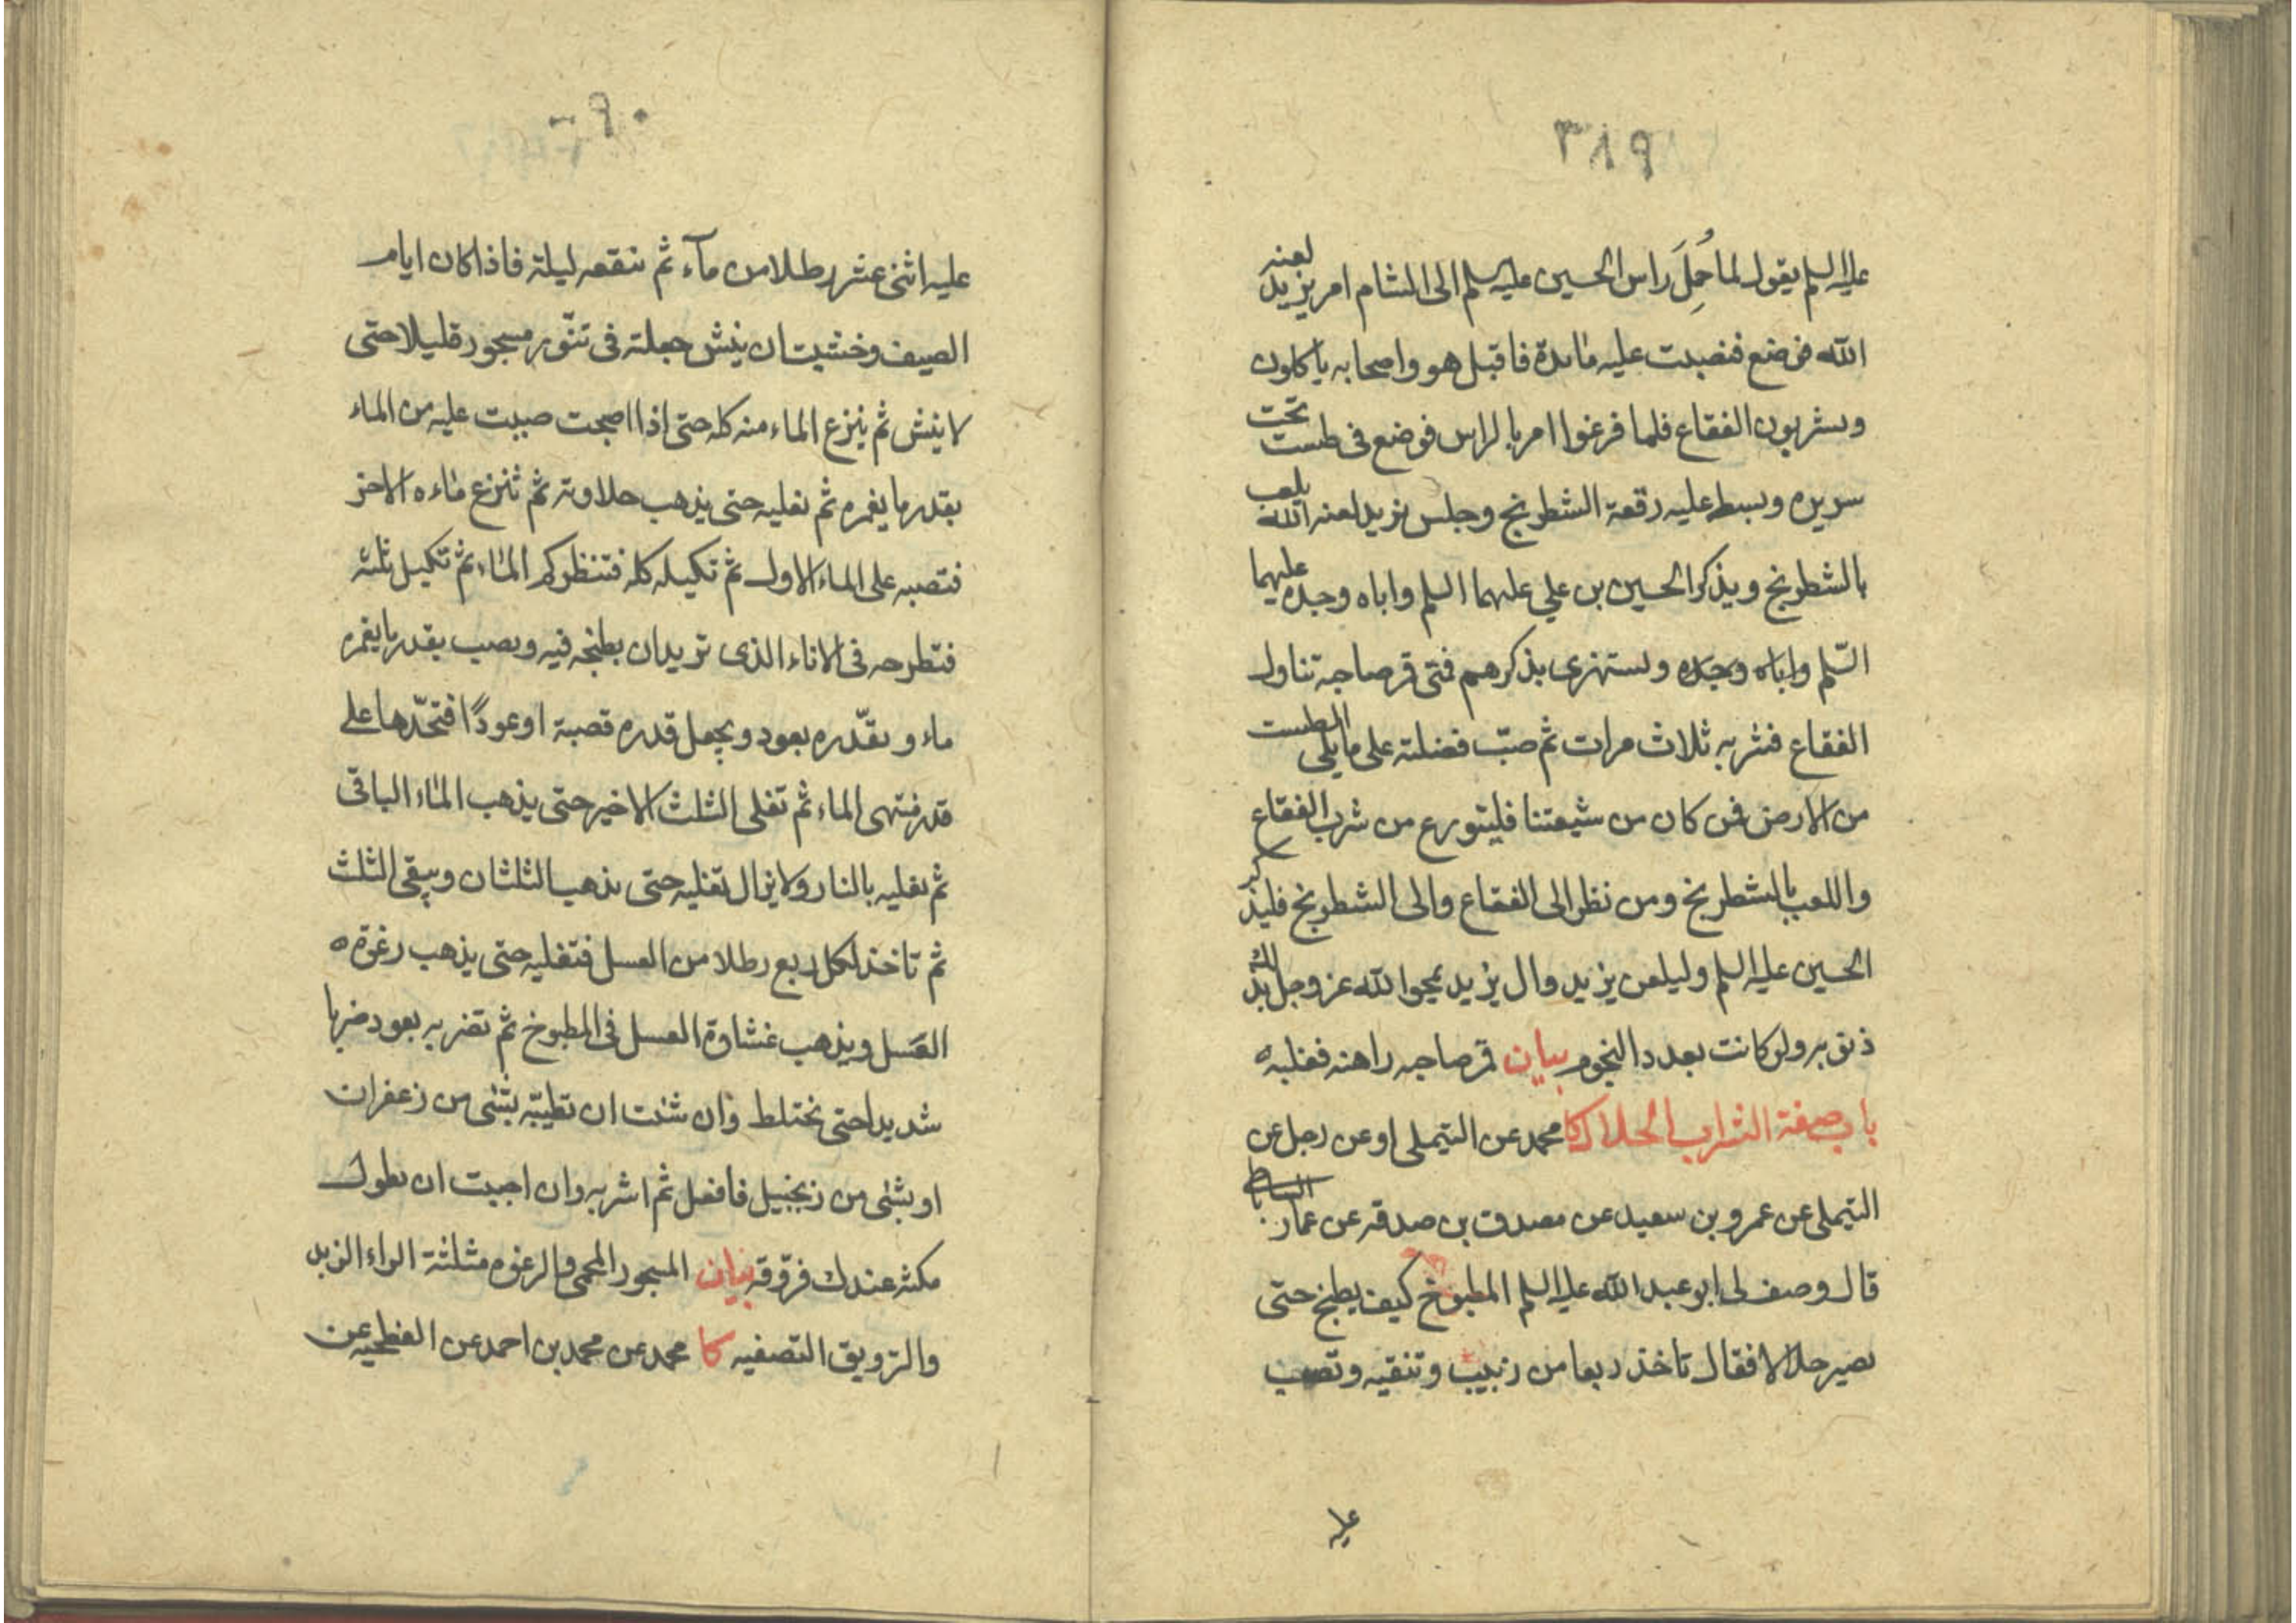 ٣٨٩
عليه السلم يقول لما حُمِلَ راس الحسين عليه السلم الى الشام امر يزيد لعنه
الله فوضع فنصبت عليه مائدة فاقبل هو واصحابه ياكلون
ويشربون الفقاع فلما فرغوا امر بالراس فوضع في طست تحت
سريره وبسط عليه رقعة الشطرنج وجلس يزيد لعنه الله يلعب
بالشطرنج ويذكر الحسين بن علي عليهما السلم واباه وجده عليهما
السّلم واباه وجده ويستهزئ بذكرهم فمتى قمر صاحبه تناول
الفقاع فشربه ثلاث مرات ثم صبّ فضلته على ما يلى الطست
من الارض فمن كان من شيعتنا فليتورع من شرب الفقاع
واللعب بالشطرنج ومن نظر الى الفقاع والى الشطرنج فليذكر
الحسين عليه السلم وليلعن يزيد وال يزيد يمحوا الله عز وجل بذلك
ذنوبه ولو كانت بعدد النجوم بيان قمر صاحبه راهنه فغلبه
باب صفة الشراب الحلال كا محمد عن التيملى او عن رجل عن
التيملى عن عمرو بن سعيد عن مصدق بن صدقه عن عمار الساباطي
قال وصف لى ابو عبد الله عليه السلم المطبوخ كيف يطبخ حتى
يصير حلالا فقال تاخذ ربعا من زبيب وتنقيه وتصب
عليه
٩٠
عليه اثنى عشر رطلا من مآء ثم تنقعه ليلة فاذا كان ايام
الصيف وخشيت ان ينش جعلته فى تنّور مسجور قليلا حتى
لا ينش ثم ينزع الماء منه كله حتى اذا اصبحت صببت عليه من الماء
بقدر ما يغمره ثم تغليه حتى يذهب حلاوته ثم تنزع ماءه الاخر
فتصبه على الماء الاول ثم تكيله كله فتنظر كم الماء ثم تكيل ثلثه
فتطرحه فى الاناء الذى تريد ان يطبخه فيه وتصب بقدر ما يغمره
ماء وتقدّره بعود ويجعل قدره قصبة او عودًا فتحدّها على
قدر منتهى الماء ثم تغلى الثلث الاخير حتى يذهب الماء الباقى
ثم تغليه بالنار ولا يزال تغليه حتى يذهب الثلثان ويبقى الثلث
ثم تاخذ لكل ربع رطلا من العسل فتغليه حتى يذهب رغوة
العسل ويذهب غشاوة العسل فى المطبوخ ثم تضربه بعود ضربا
شديدا حتى يختلط وان شئت ان تطيبّه بشئ من زعفران
او بشئ من زنجبيل فافعل ثم اشربه وان احببت ان يطول
مكثه عندك فروّقه بيان المسجور المحمى والرغوه مثلثة الراء الزبد
والترويق التصفيه كا محمد عن محمد بن احمد عن الفطحيه عن